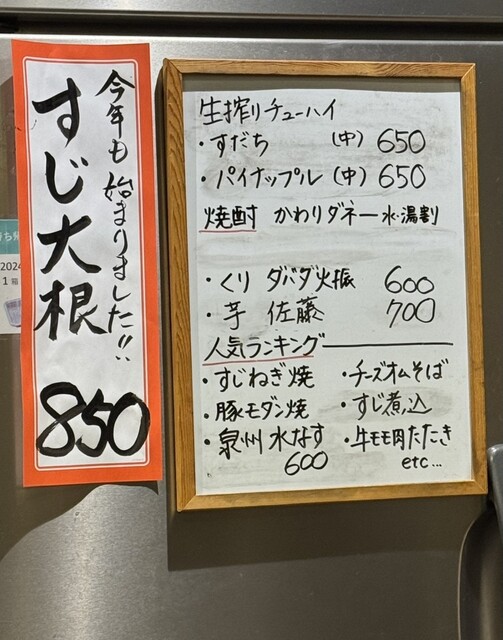 今年も始まりました!!
すじ大根
850
生搾りチューハイ
・すだち (中) 650
・パイナップル (中) 650
焼酎 かわりダネー水・湯割
・くり ダバダ火振 600
・芋 佐藤 700
人気ランキング
・すじねぎ焼 ・チーズオムそば
・豚モダン焼 ・すじ煮込
・泉州水なす ・牛モモ肉たたき
600 etc...
2024
1箱